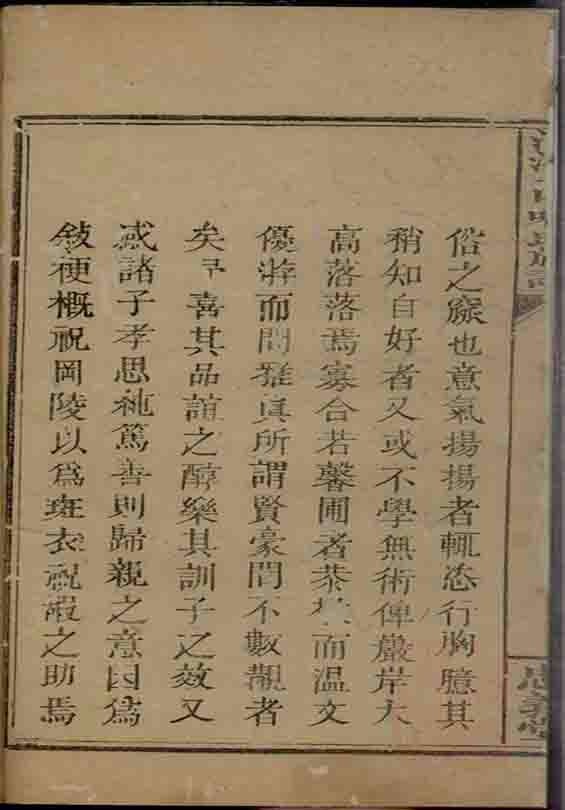 俗之窳也意氣揚揚者輒恣行胸臆其
稍知自好者又或不學無術俾嚴岸太
高落落焉寡合若馨圃者恭 而溫文
優游而閒雅真所謂賢豪間不數覯者
矣 喜其品誼之醇樂其訓子之效又
感諸子孝思純篤善則歸親之意因爲
敍梗概祝岡陵以爲斑衣祝嘏之助焉